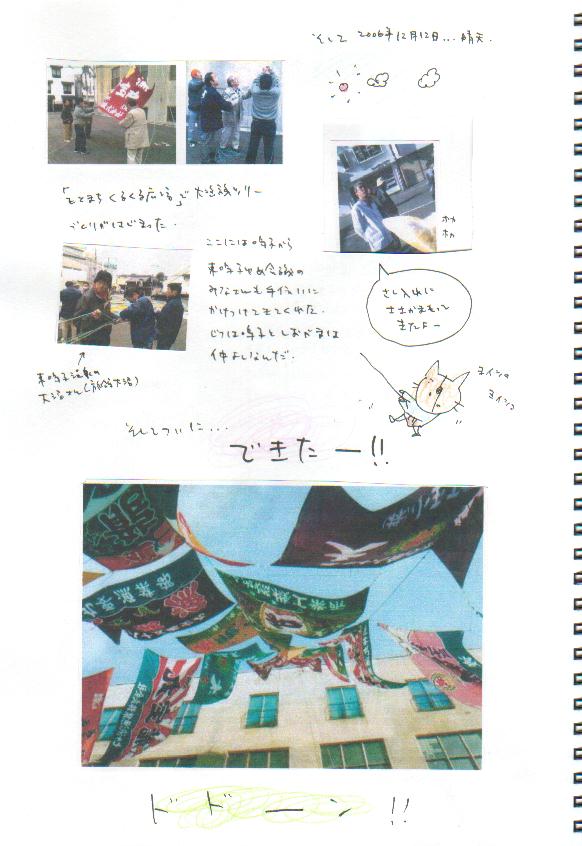 そして 2006年12月12日... 晴天.
ホカ
ホカ
「もとまちくるくる広場」で大漁旗ツリー
づくりがはじまった.
ここには鳴子から
東鳴子ゆめ会議の
みなさんも手伝いに
かけつけてきてくれた.
じつは鳴子としおがまは
仲よしなんだ.
さし入れに
きたよー
ヨイショ
ヨイショ
東鳴子温泉の
大沼さん(旅館大沼)
そしてついに...
できたー!!
ドドーン!!